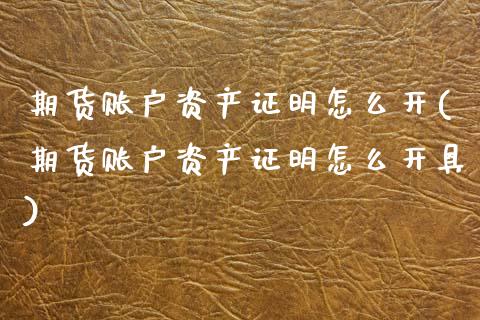 期货账户资产证明怎么开(
期货账户资产证明怎么开具
)